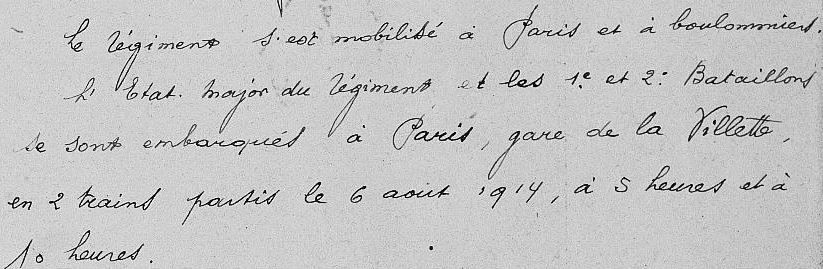 Le régiment s'est mobilisé à Paris et à boulommiers.
L'Etat. Major du régiment et les 1e. et 2e. Bataillons
se sont embarqués à Paris, gare de la Villette,
en 2 trains partis le 6 aout 1914, à 5 heures et à
10 heures.